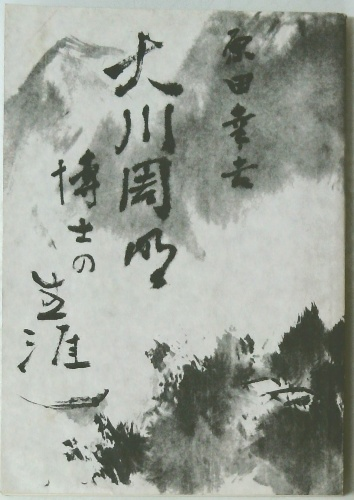 原田幸吉
大川周明
博士の
生涯